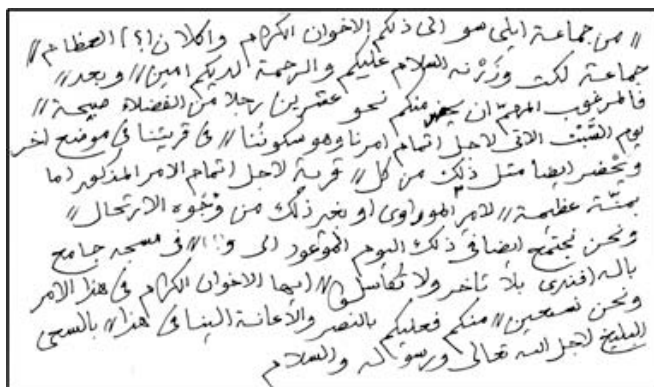 // من جماعة ايلى سو الى ذلكم الاخوان الكرام واكلان (؟) العظام //
جماعة لكت وذرنه السلام عليكم والرحمة لديكم امين // وبعد //
فالمرغوب المهم ان يحضر منكم نحو عشرين رجلا من الفضلاء صبيحة //
يوم السبت الاتى لاجل اتمام امرنا وهو سكوننا // فى قريتنا فى موضع اخر
ويحضر ايضا مثل ذلك من كل // قرية لاجل اتمام الامر المذكور اما
بمنة عظيمة // لامر او بغير ذلك من وجوه الارتحال //
ونحن نجتمع ايضا فى ذلك اليوم الموعود الى فى مسجد جامع
بلا تاخر ولا تكاسل // ايها الاخوان الكرام فى هذا الامر
ونحن نستعين // منكم فعليكم بالنصر والاعانة الينا فى هذا // بالسعى
البليغ لاجل الله تعالى ورسوله والسلام